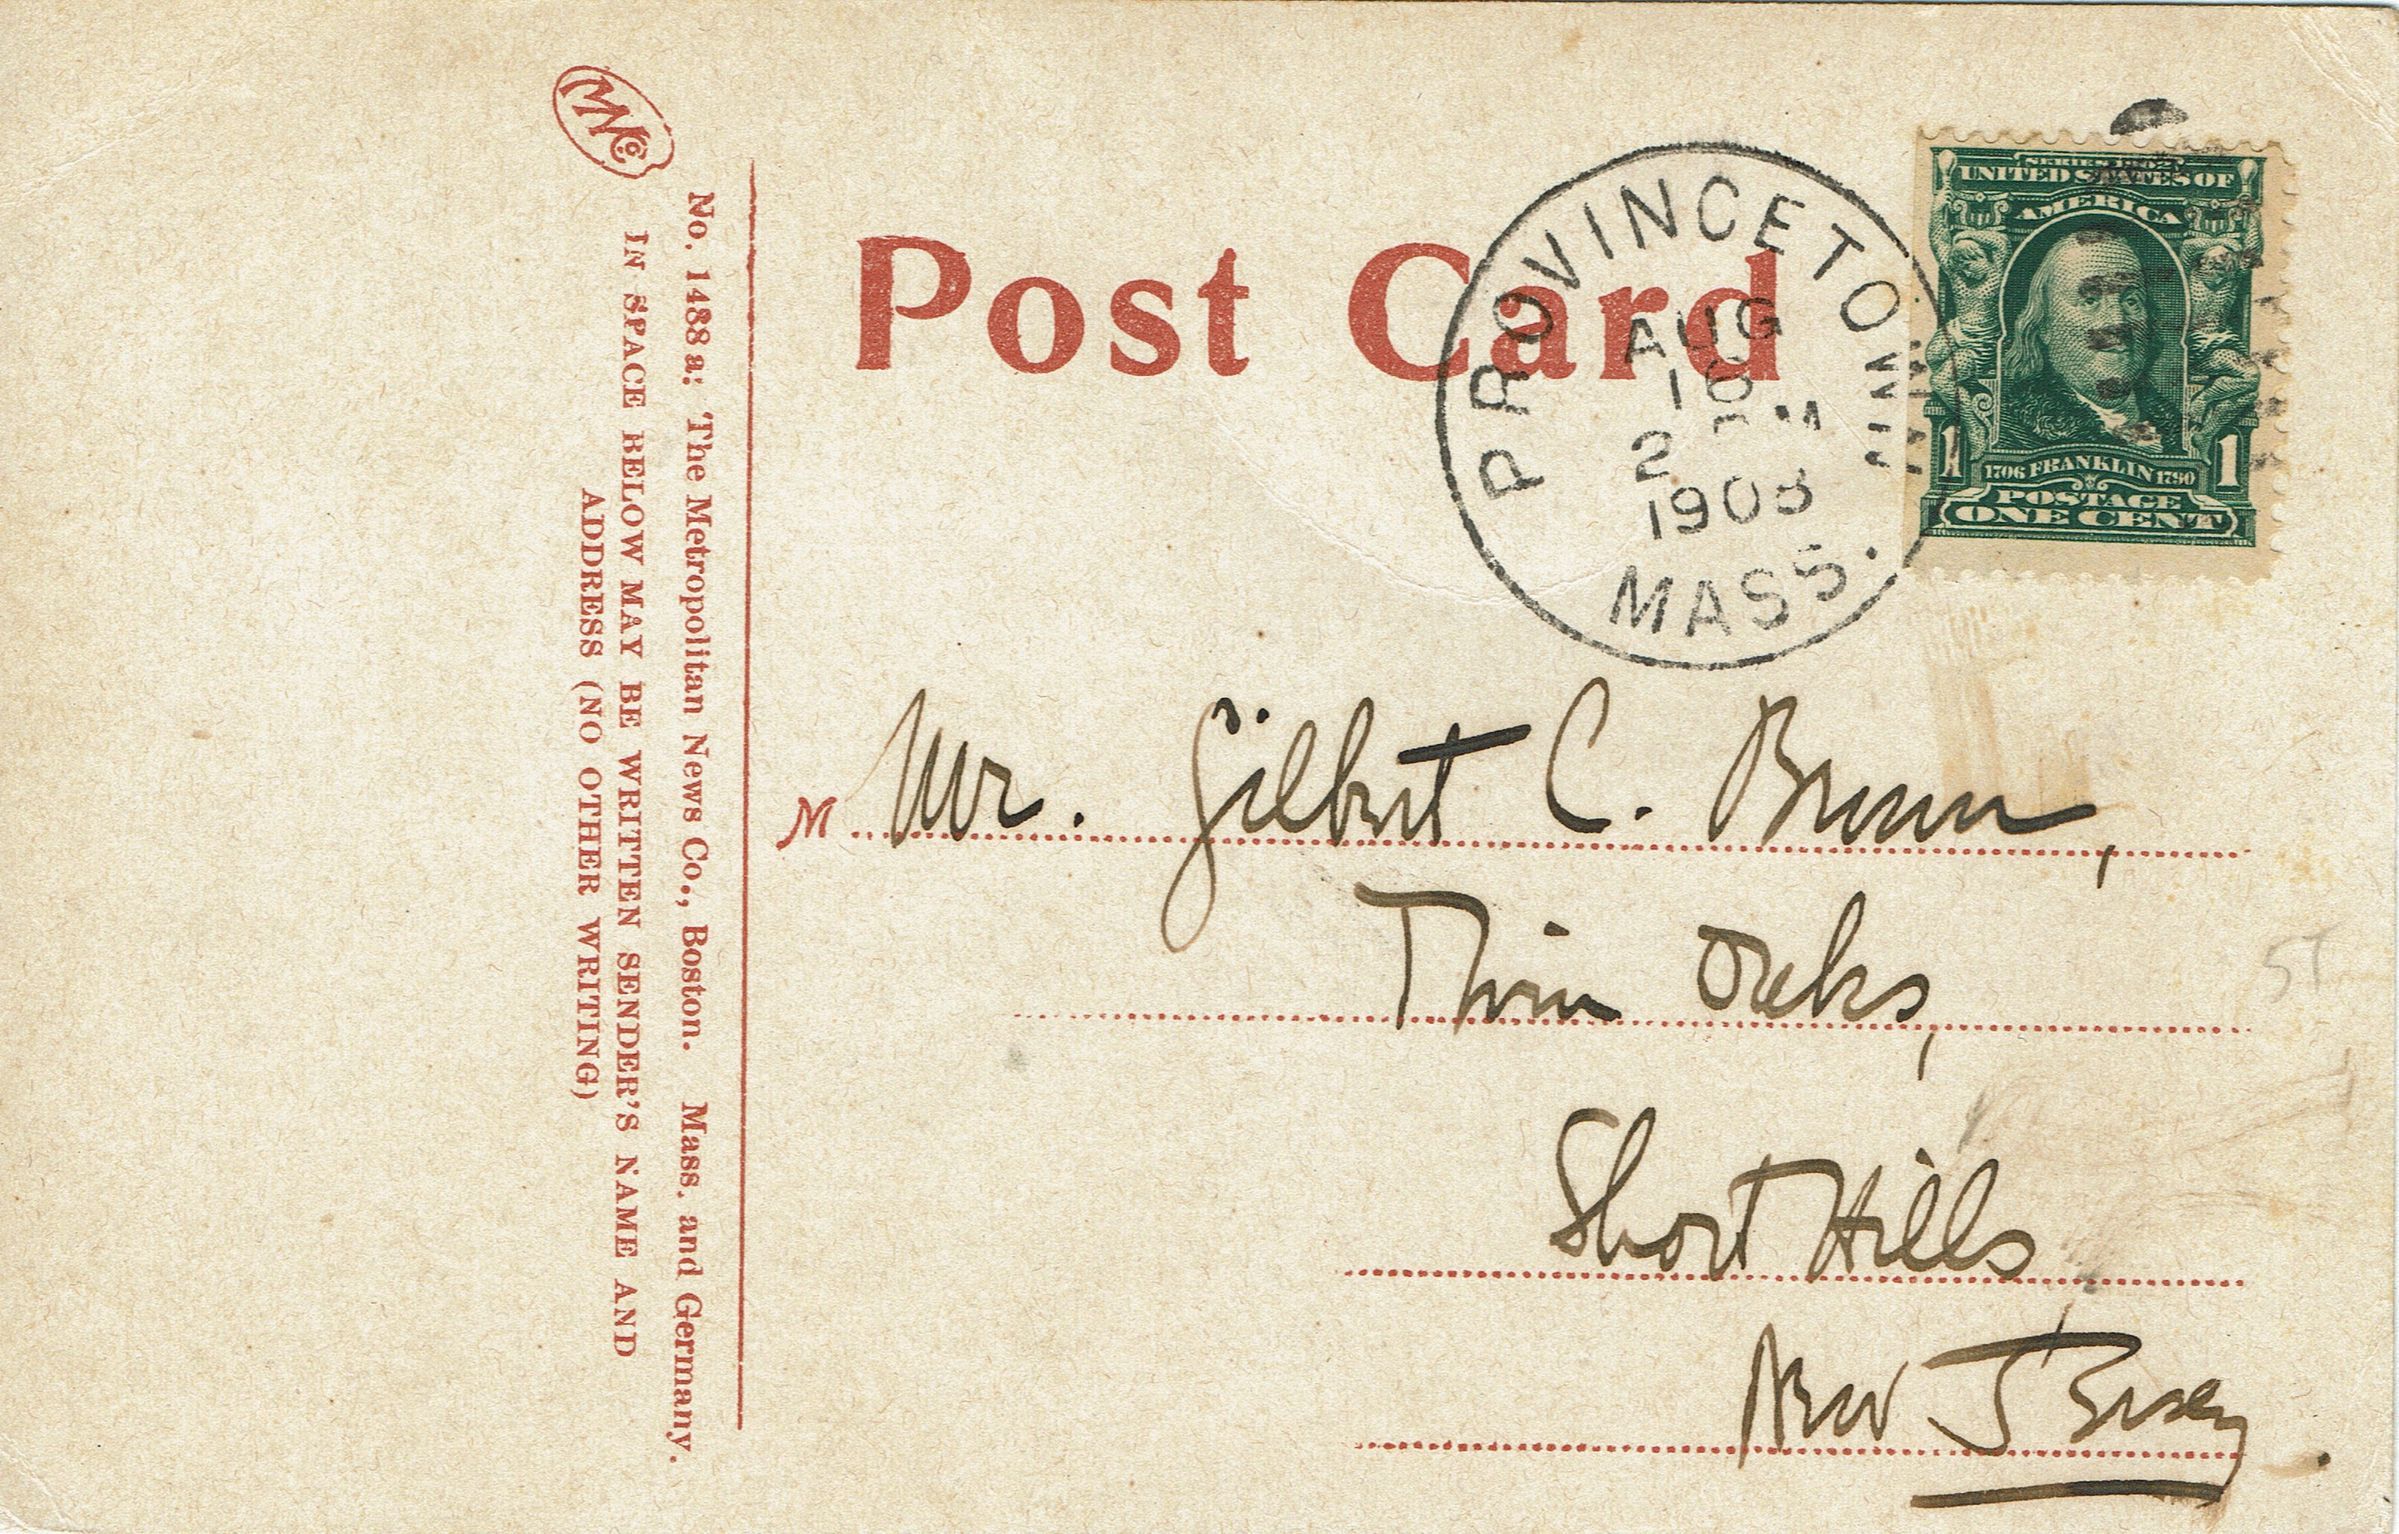 MNCo.
No. 1488 a: The Metropolitan News Co., Boston. Mass. and Germany.
IN SPACE BELOW MAY BE WRITTEN SENDER'S NAME AND
ADDRESS (NO OTHER WRITING)
Post Card
PROVINCETOWN
AUG
16
2 PM
1908
MASS.
SERIES 1902
UNITED STATES OF
AMERICA
1 1706 FRANKLIN 1790 1
POSTAGE
ONE CENT
M Mr. Gilbert C. Brown,
Twin Oaks,
Short Hills
New Jersey.
ST